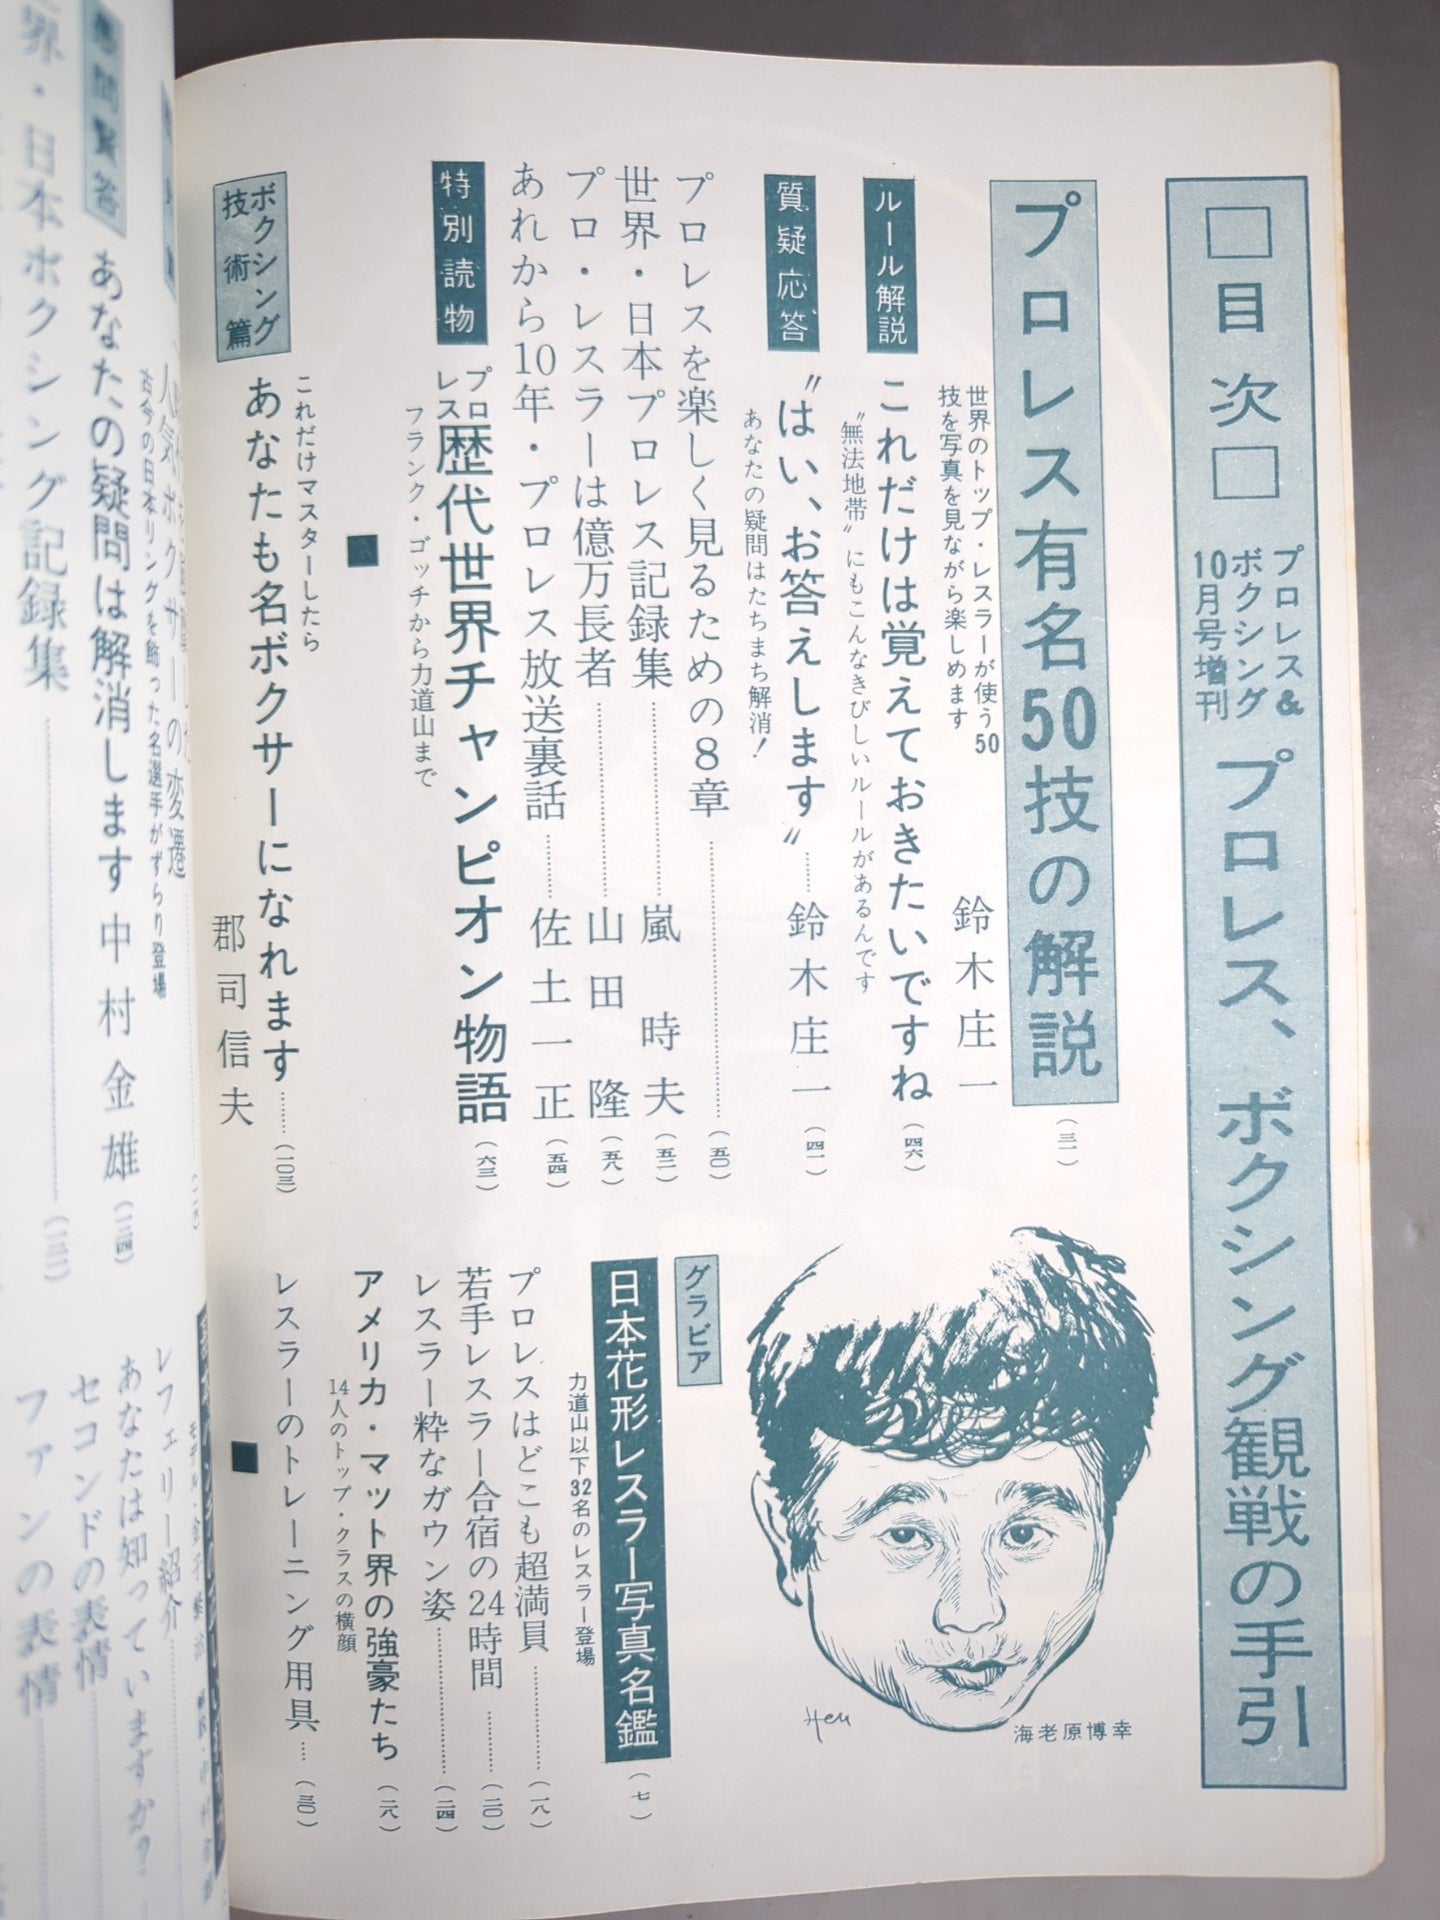 □目次□
プロレス&
ボクシング
10月号増刊
プロレス、ボクシング観戦の手引
プロレス有名50技の解説
(三一)
世界のトップ・レスラーが使う50
技を写真を見ながら楽しめます
鈴木庄一
ルール解説
これだけは覚えておきたいですね
(四六)
〝無法地帯〟にもこんなきびしいルールがあるんです
質疑応答
〝はい、お答えします〟……鈴木庄一
(四一)
あなたの疑問はたちまち解消!
プロレスを楽しく見るための8章……(五〇)
世界・日本プロレス記録集……嵐時夫(五二)
プロ・レスラーは億万長者……山田隆(五八)
あれから10年・プロレス放送裏話……佐土一正(五四)
特別読物
プロレス歴代世界チャンピオン物語(六三)
フランク・ゴッチから力道山まで
■
ボクシング
技術篇
これだけマスターしたら
あなたも名ボクサーになれます……(一〇三)
郡司信夫
海老原博幸
Hen
グラビア
日本花形レスラー写真名鑑(七)
力道山以下32名のレスラー登場
プロレスはどこも超満員……(一八)
若手レスラー合宿の24時間……(二〇)
レスラー粋なガウン姿……(二四)
アメリカ・マット界の強豪たち(二八)
14人のトップ・クラスの横顔
レスラーのトレーニング用具…(三〇)
■
人気ボクサーの変遷
古今の日本リングを飾った名選手がずらり登場
問賢答
あなたの疑問は解消します 中村金雄
界・日本ボクシング記録集……
レフェリー紹介……
あなたは知っていますか?
セコンドの表情
ファンの表情